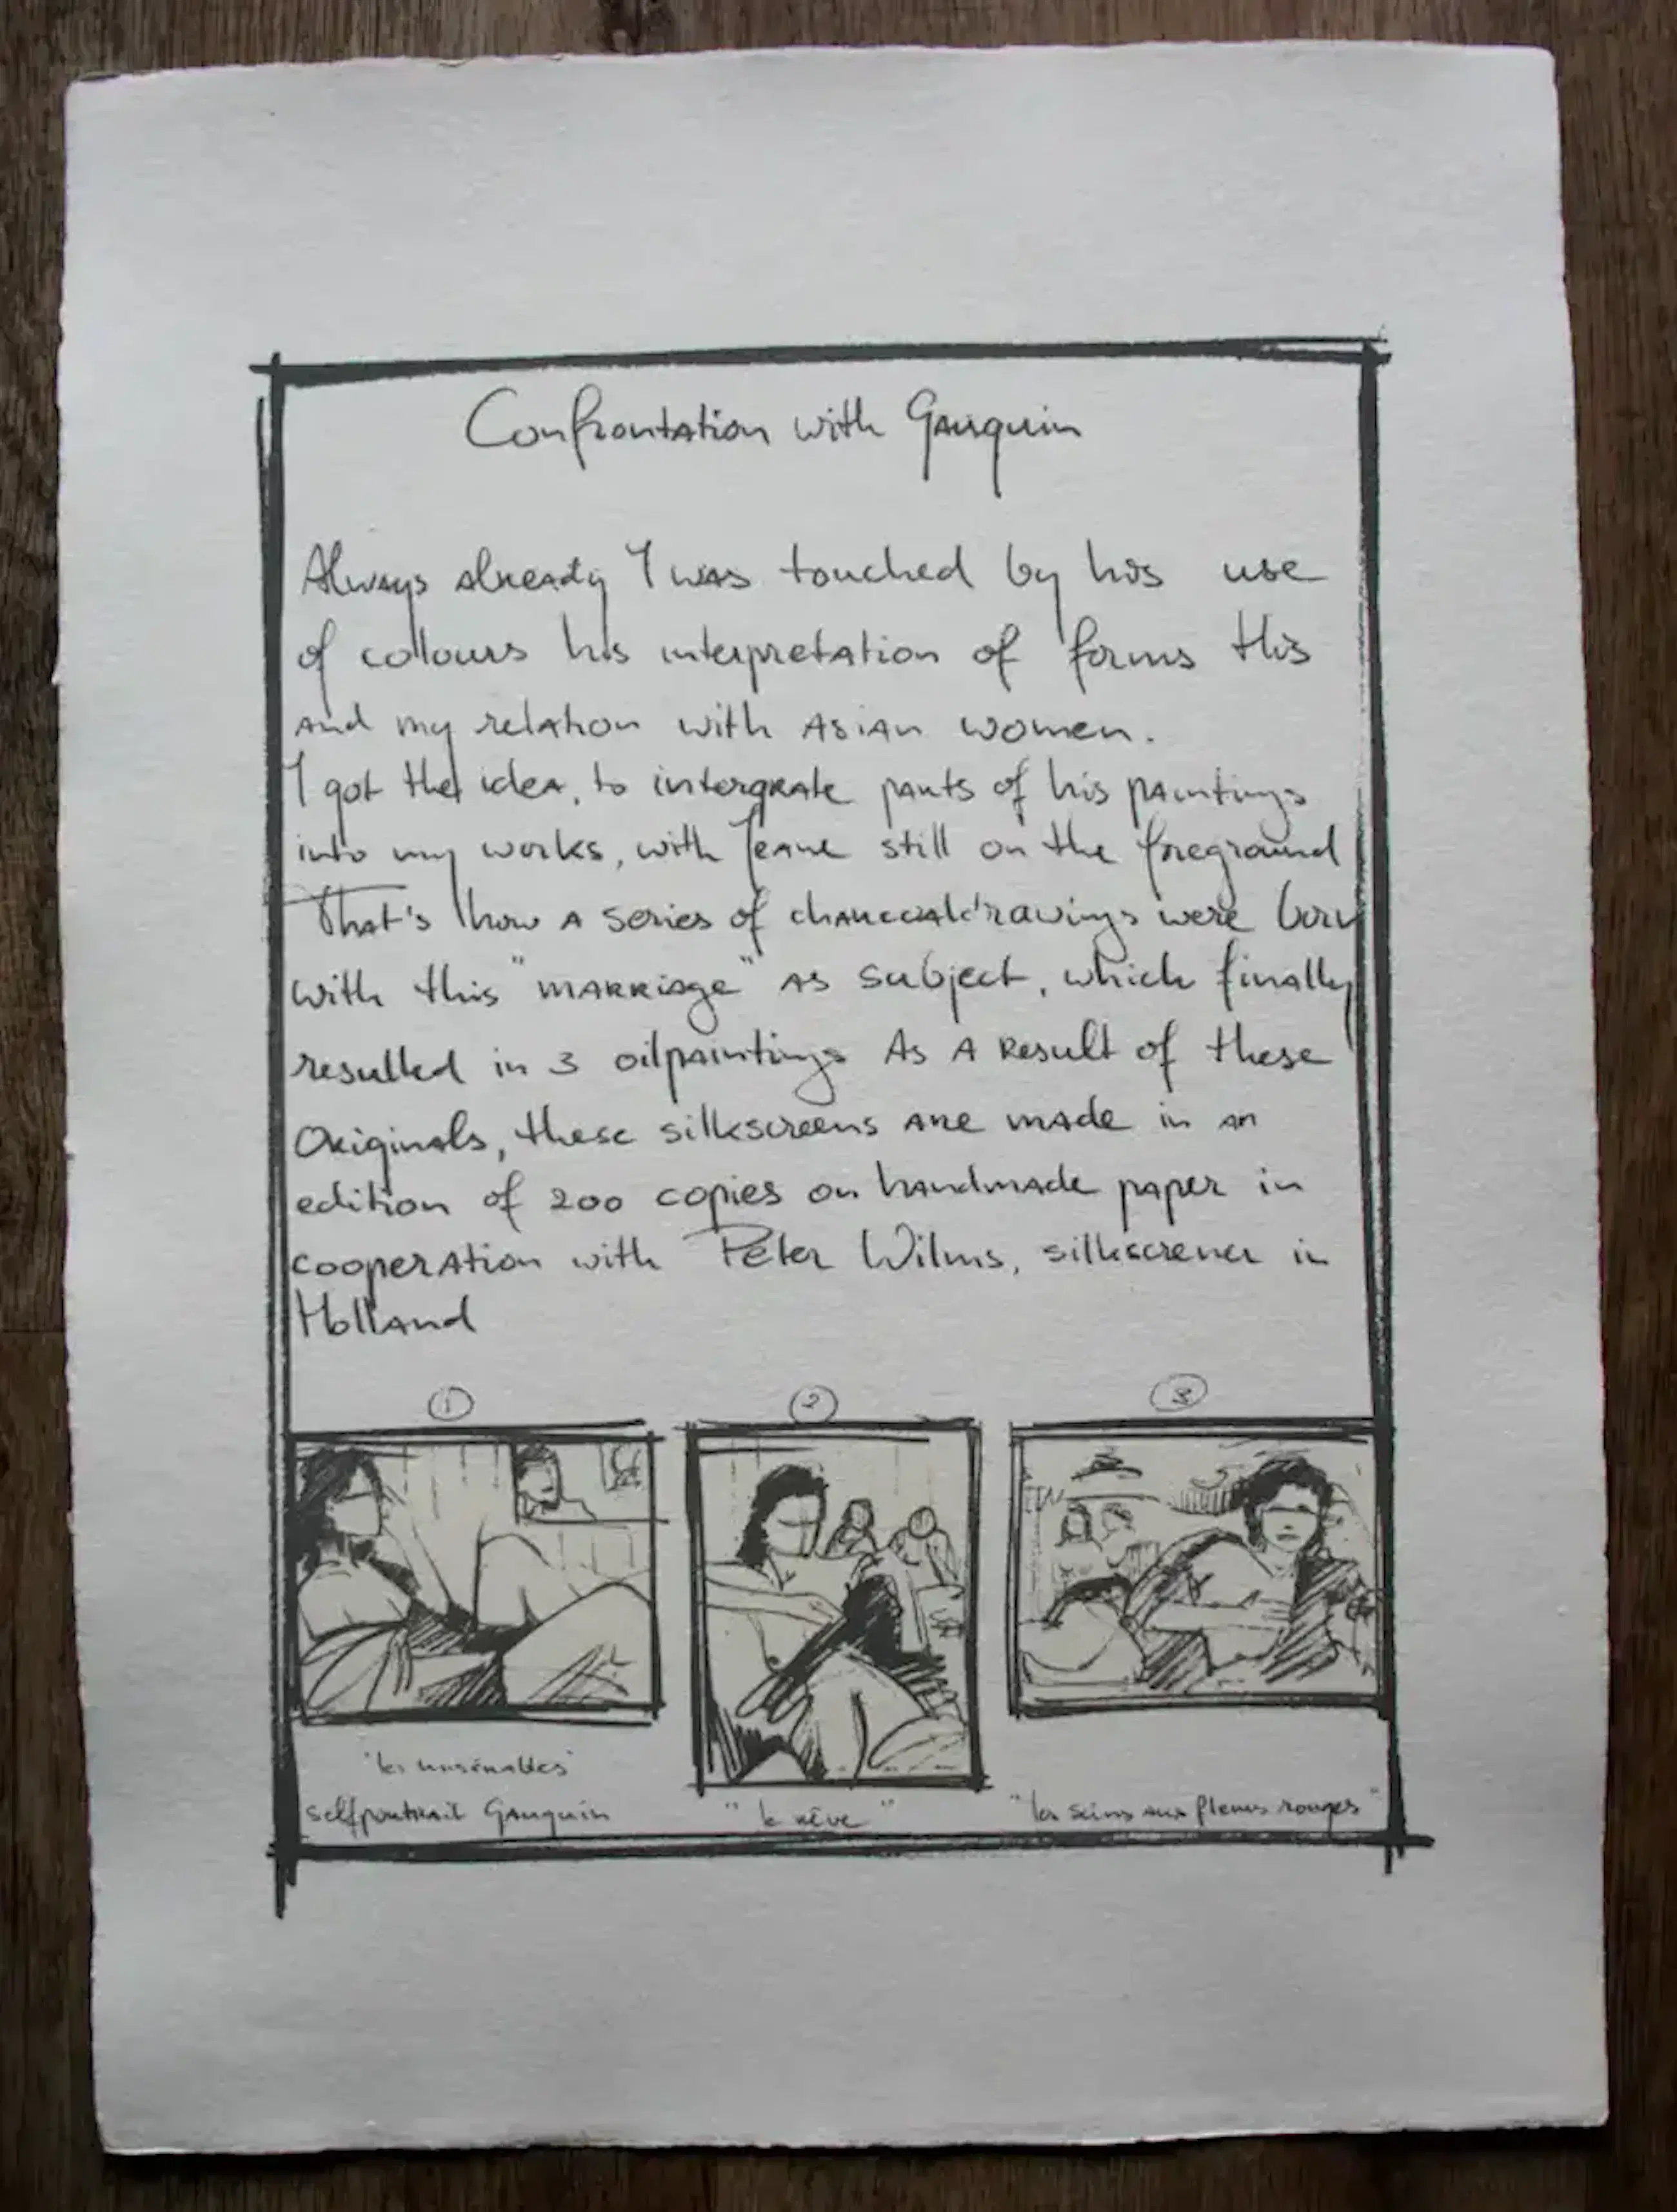 Confrontation with Gauguin
Always already I was touched by his use
of collours his interpretation of forms this
and my relation with Asian women.
I got the idea, to intergrate parts of his paintings
into my works, with Jeane still on the foreground
That's how a series of charcoaldrawings were born
with this "marriage" as subject, which finally
resulted in 3 oilpaintings As a result of these
Originals, these silkscreens are made in an
edition of 200 copies on handmade paper in
cooperation with Peter Wilms, silkscrener in
Holland
1 2 3
"les misérables"
selfportrait Gauguin "le rêve" "les seins aux fleurs rouges"